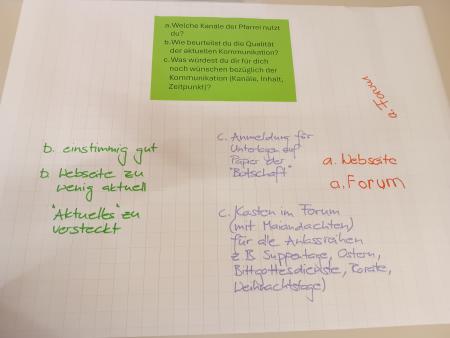 a. Welche Kanäle der Pfarrei nutzt
du?
b. Wie beurteilst du die Qualität
der aktuellen Kommunikation?
c. Was würdest du dir für dich
noch wünschen bezüglich der
Kommunikation (Kanäle, Inhalt,
Zeitpunkt)?
a. Forum
b. einstimmig gut
b Webseite zu
wenig aktuell
"Aktuelles" zu
versteckt
c. Anmeldung für
Unterlagen auf
Papier der
"Botschaft"
c. Kasten im Forum
(mit Maiandachten)
für alle Anlassreihen
z.B. Suppentage, Ostern,
Bittgottesdienste, Rorate,
Weihnachtstage)
a. Webseite
a. Forum